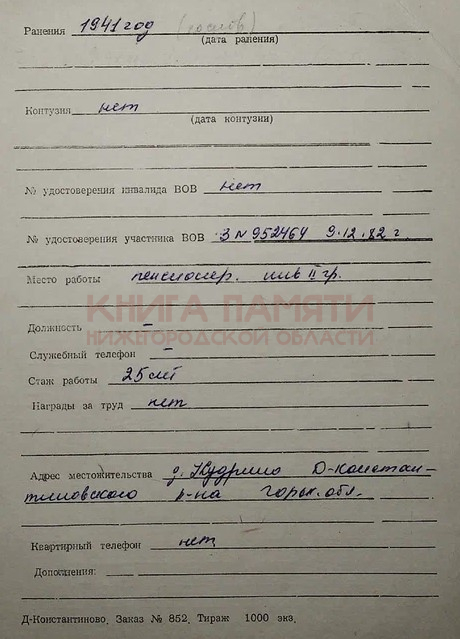 Ранения 1941 год
(дата ранения)
Контузия нет
(дата контузии)
№ удостоверения инвалида ВОВ нет
№ удостоверения участника ВОВ З N 952464 9.12.82 г.
Место работы пенсионер. инв II гр.
КНИГА ПАМЯТИ
НИЖЕГОРОДСКОЙ ОБЛАСТИ
Должность —
Служебный телефон —
Стаж работы 25 лет
Награды за труд нет
Адрес местожительства д. Кудрино Д-констан-
тиновского р-на горьк. обл.
Квартирный телефон нет
Дополнения:
Д-Константиново. Заказ № 852. Тираж 1000 экз.